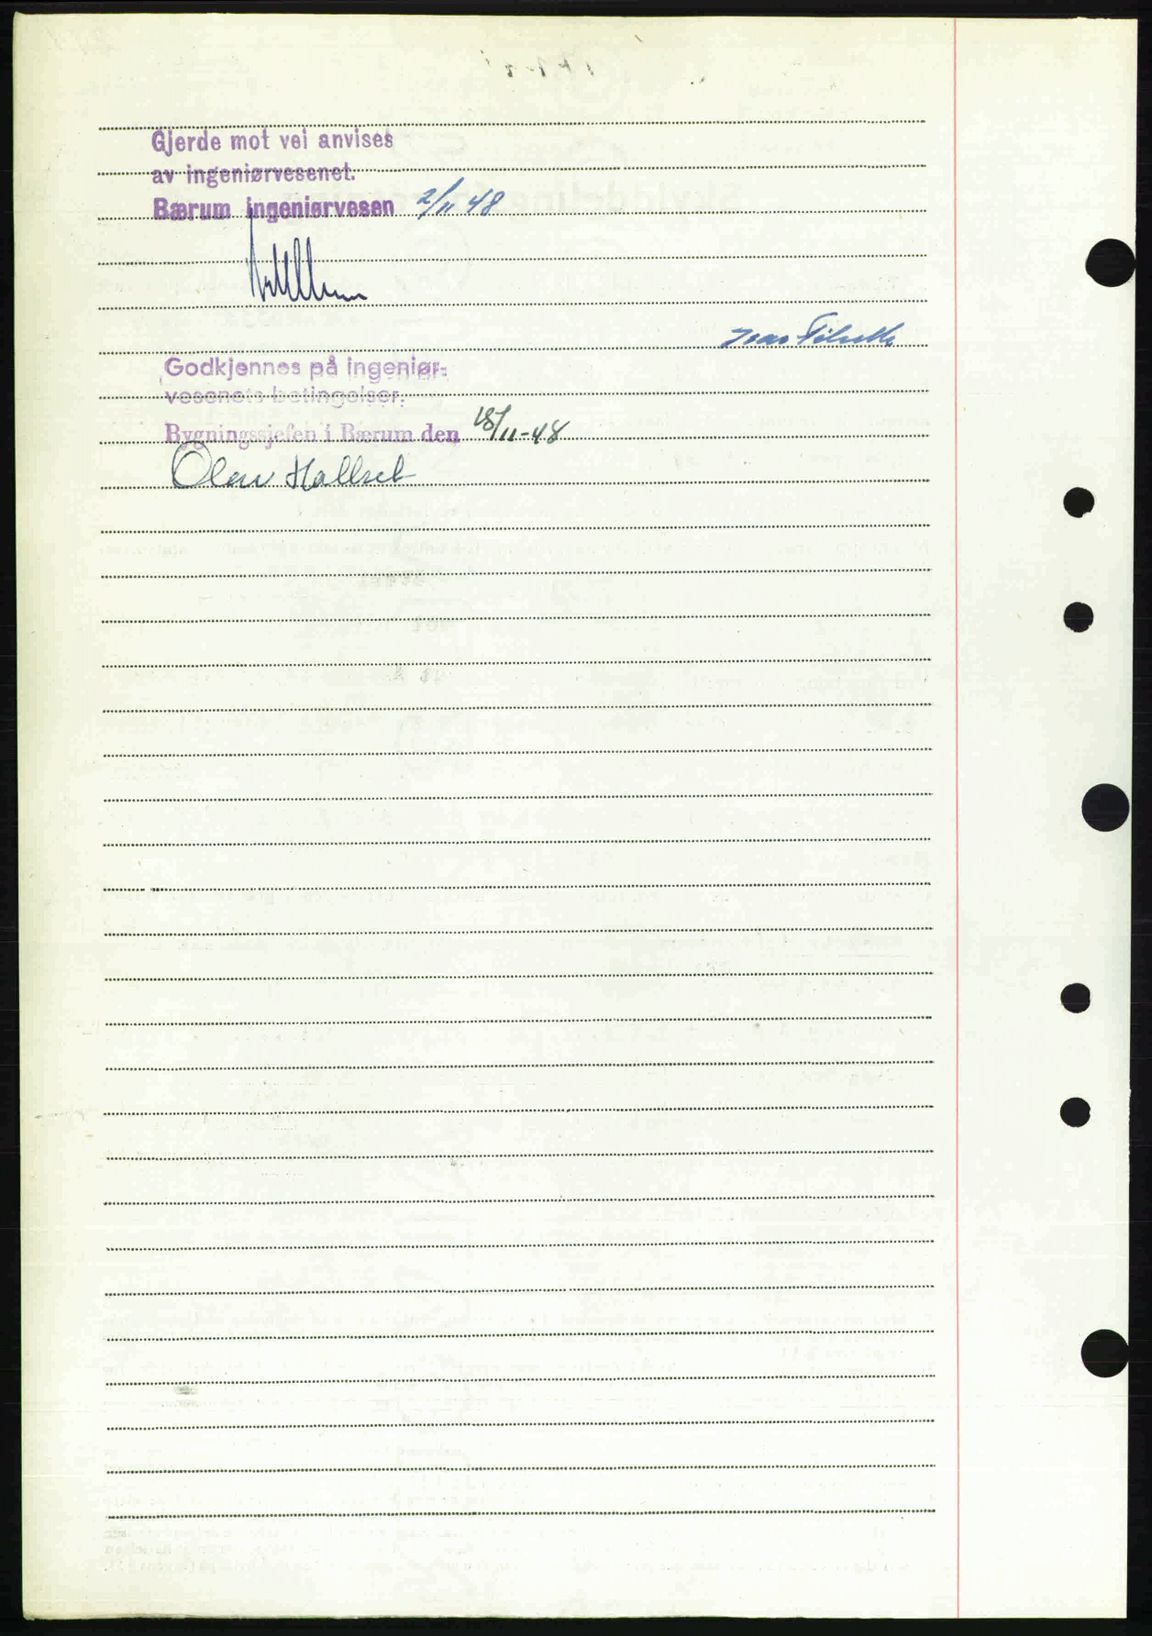 Gjerde mot vei anvises
av ingeniørvesenet.
Bærum ingeniørvesen 2/11 48
Godkjennes på ingeniør-
vesenets betingelser.
Bygningssjefen i Bærum den 18/11-48
Olav Hallset